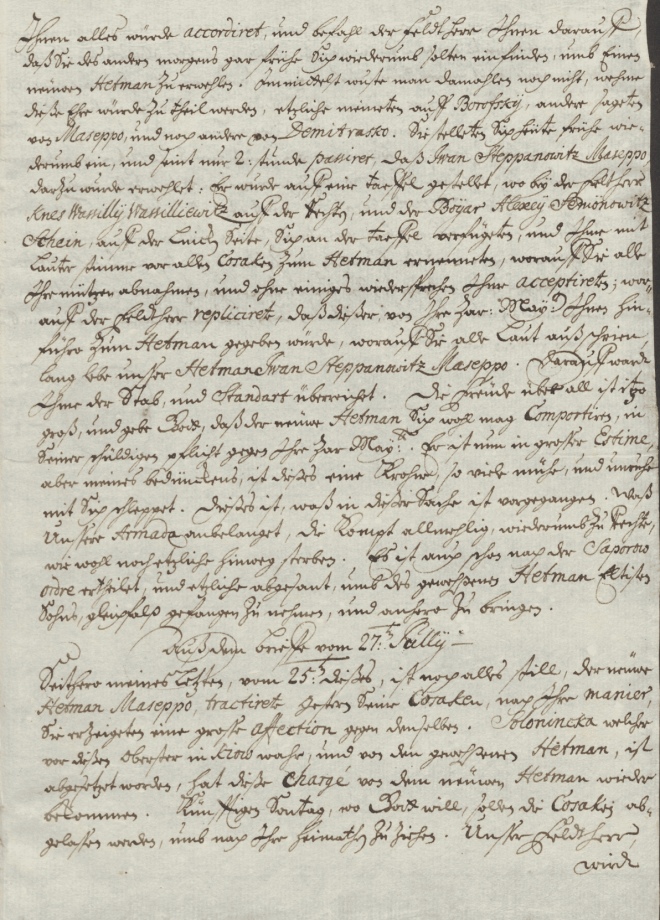 Ihnen alles würde accordiret, und befahl der Feldtherr Ihnen darauff,
daß Sie des andern morgens gar frühe Sich wiederumb solten einfinden, umb Einen
neüwen Hetman Zu erwehlen. Immittelst wuste man damahlen noch nicht, wehme
diese Ehre würde zu theil werden, etzliche meineten auff Borofsky, andere sageten
von Maseppo, und noch andere von Demitrasko. Sie stelleten Sich heüte frühe wie-
derumb ein, und seint nur 2: stunde passiret, daß Iwan Steppanowitz Maseppo
darzu wurde erwehlet: Er wurde auff eine taeffel gestellet, wo bey der Feldtherr
Knes Wassilly Wassilliewitz auff der Rechten, und der Bojar Alexey Semonowitz
Schein, auff der Lincken Seite, Sich an der taeffel verfügeten, und Ihne mit
Lauter stimme vor allen Cosaken Zum Hetman ernenneten, worauff Sie alle
Ihre mützen abnahmen, und ohne einiges wiedersprechen Ihne acceptireten; wor-
auff der Feldtherr repliciret, daß dießer, von Ihre Zar: Mayt: Ihnen hin-
führo zum Hetman gegeben würde, worauff Sie alle Laut außschrien,
lang lebe unser Hetman Iwan Steppanowitz Maseppo. Darauff wardt
Ihme der Stab, und Standart überreichet. Die Freüde über all ist itzo
groß, und gebe Gott, daß der neüwe Hetman Sich wohl mag Comportiren, in
Seiner schuldigen pflicht gegen Ihre Zar Mayt:. Er ist nun in grosser Estime,
aber meines bedünckens, ist dieses eine Krohne, so viele mühe, und unruhe
mit Sich schleppet. Dieses ist, waß in dießer Sache ist vorgegangen. Waß
Unssere Armada anbelanget, die kompt allmehlig, wiederumb zu Rechte,
wie wohl noch etzliche hinweg sterben. Es ist auch schon nach der Saporow
ordre ertheilet, und etzliche abgesant, umb des gewesenen Hetman Eltisten
Sohn, gleichfalß gefangen Zu nehmen, und anhero Zu bringen.
Auß dem brieffe vom 27:t Jülly
Seithero meines Letzten, vom 25:t dießes, ist noch alles still, der neüwe
Hetman Maseppo, tractirete gestern Seine Cosaken, nach Ihre manier,
Sie erzeigeten eine grosse affection gegen denselben. Solonincka welcher
vor dießen oberster in Kiow wahr, und von den gewesenen Hetman, ist
abgesetzt worden, hat diese Charge von dem neüwen Hetman wieder
bekommen. Künfftigen Sontag, wo Gott will, sollen die Cosaken ab-
gelassen werden, umb nach Ihre heimathen Zu ziehen. Unsser Feldtherr,
wirdt